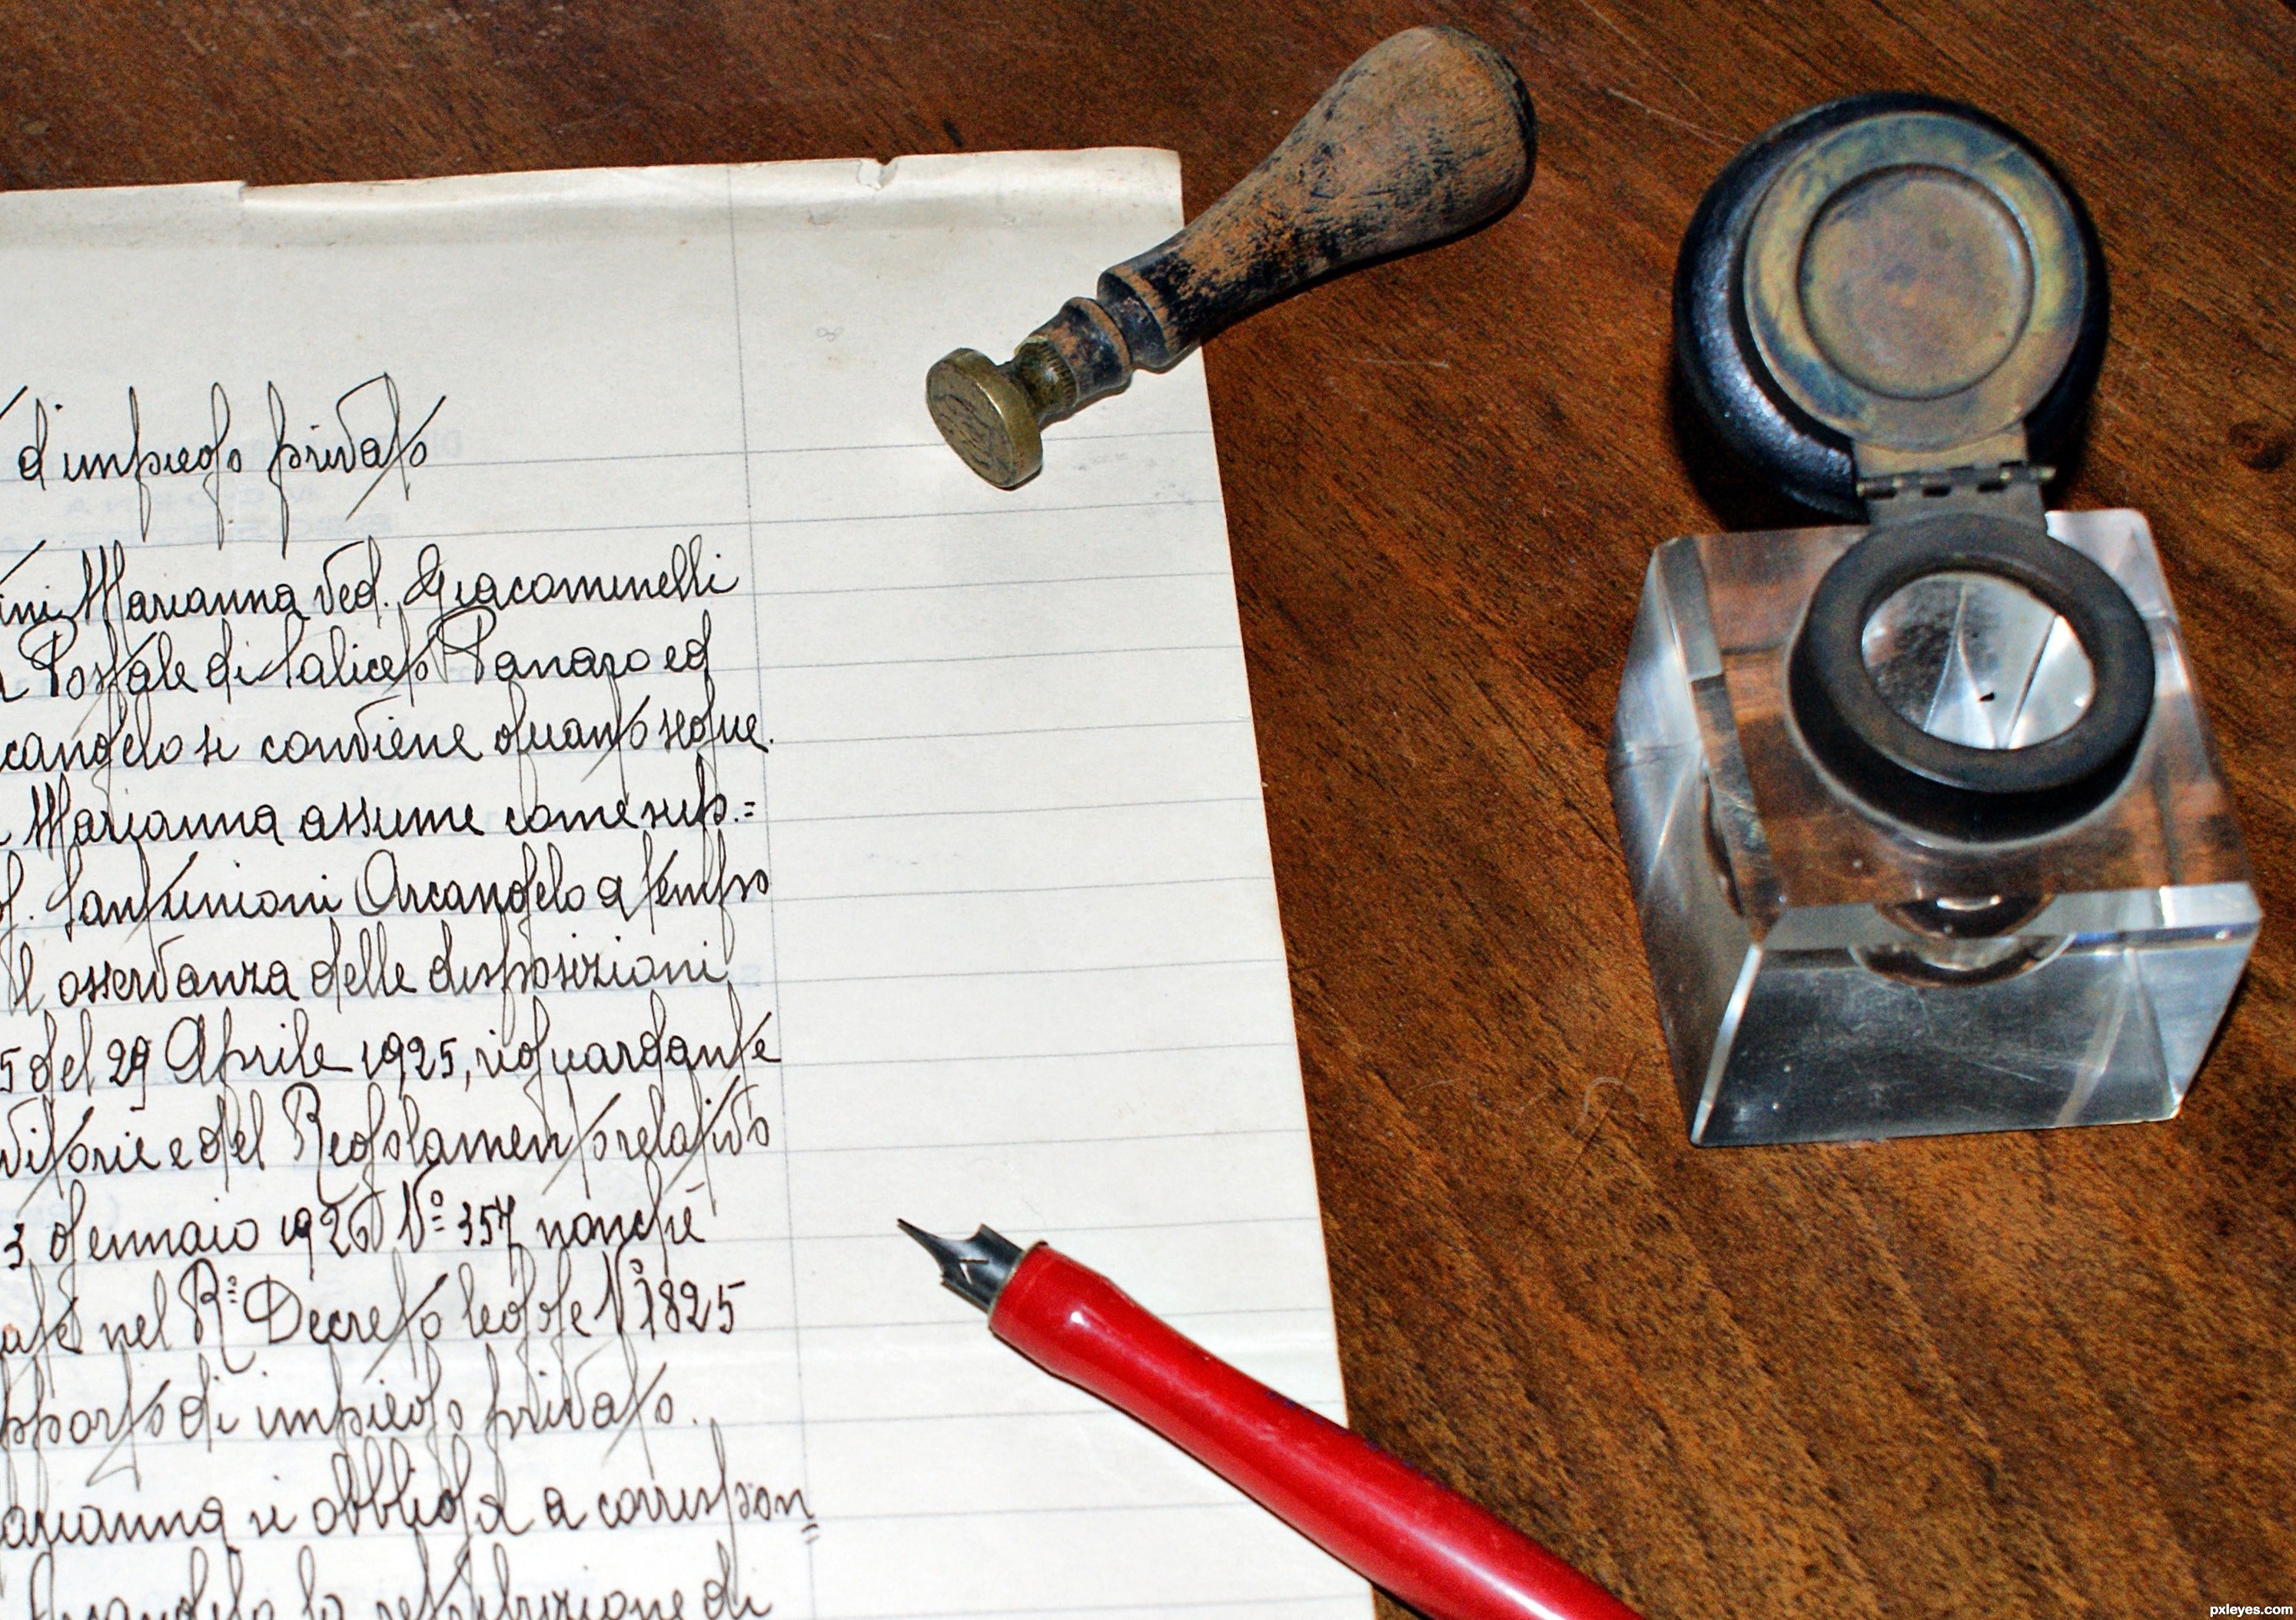 d'impiego privato
ini Marianna Ved. Giacominelli
Postale di Saliceto Panaro ed
cangelo si conviene quanto segue.
Marianna assume come sup.=
Santunioni Arcangelo a tempo
osservanza delle disposizioni
5 del 29 Aprile 1925, riguardante
vitorie e del Regolamento relativo
3 Gennaio 1926 N° 357 nonchè
nel R° Decreto legge N° 1825
pporto di impiego privato.
arianna si obbliga a corrispon=
Arcangelo la retribuzione di
pxleyes.com